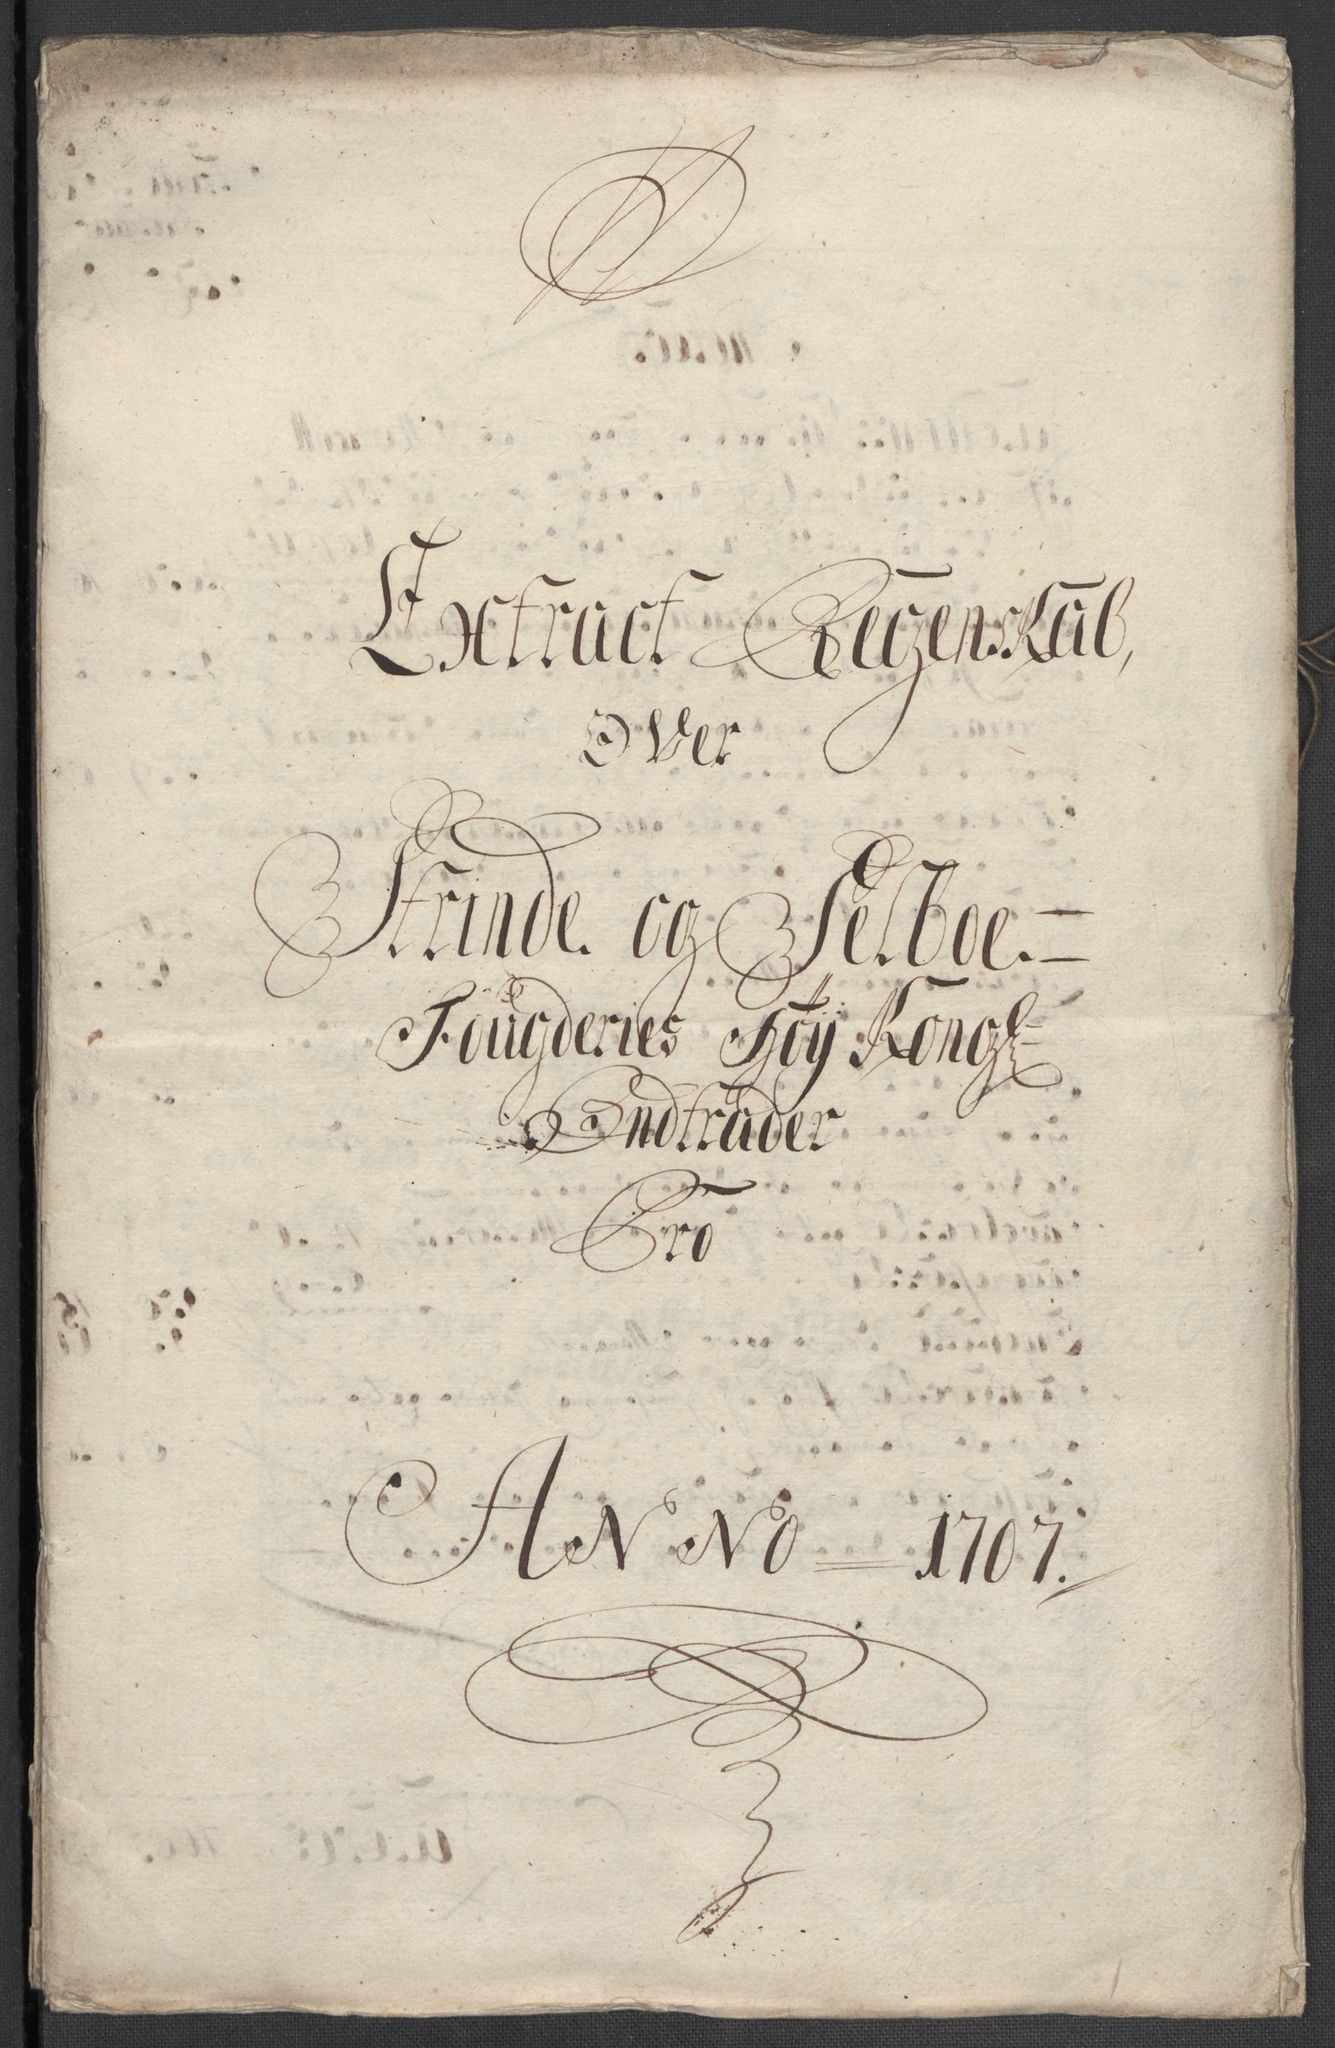 Extract Regenskab,
Over
Strinde og Selboe=
Fougderies Høy Kongl
Indtrader
Pro
ANNO = 1707.